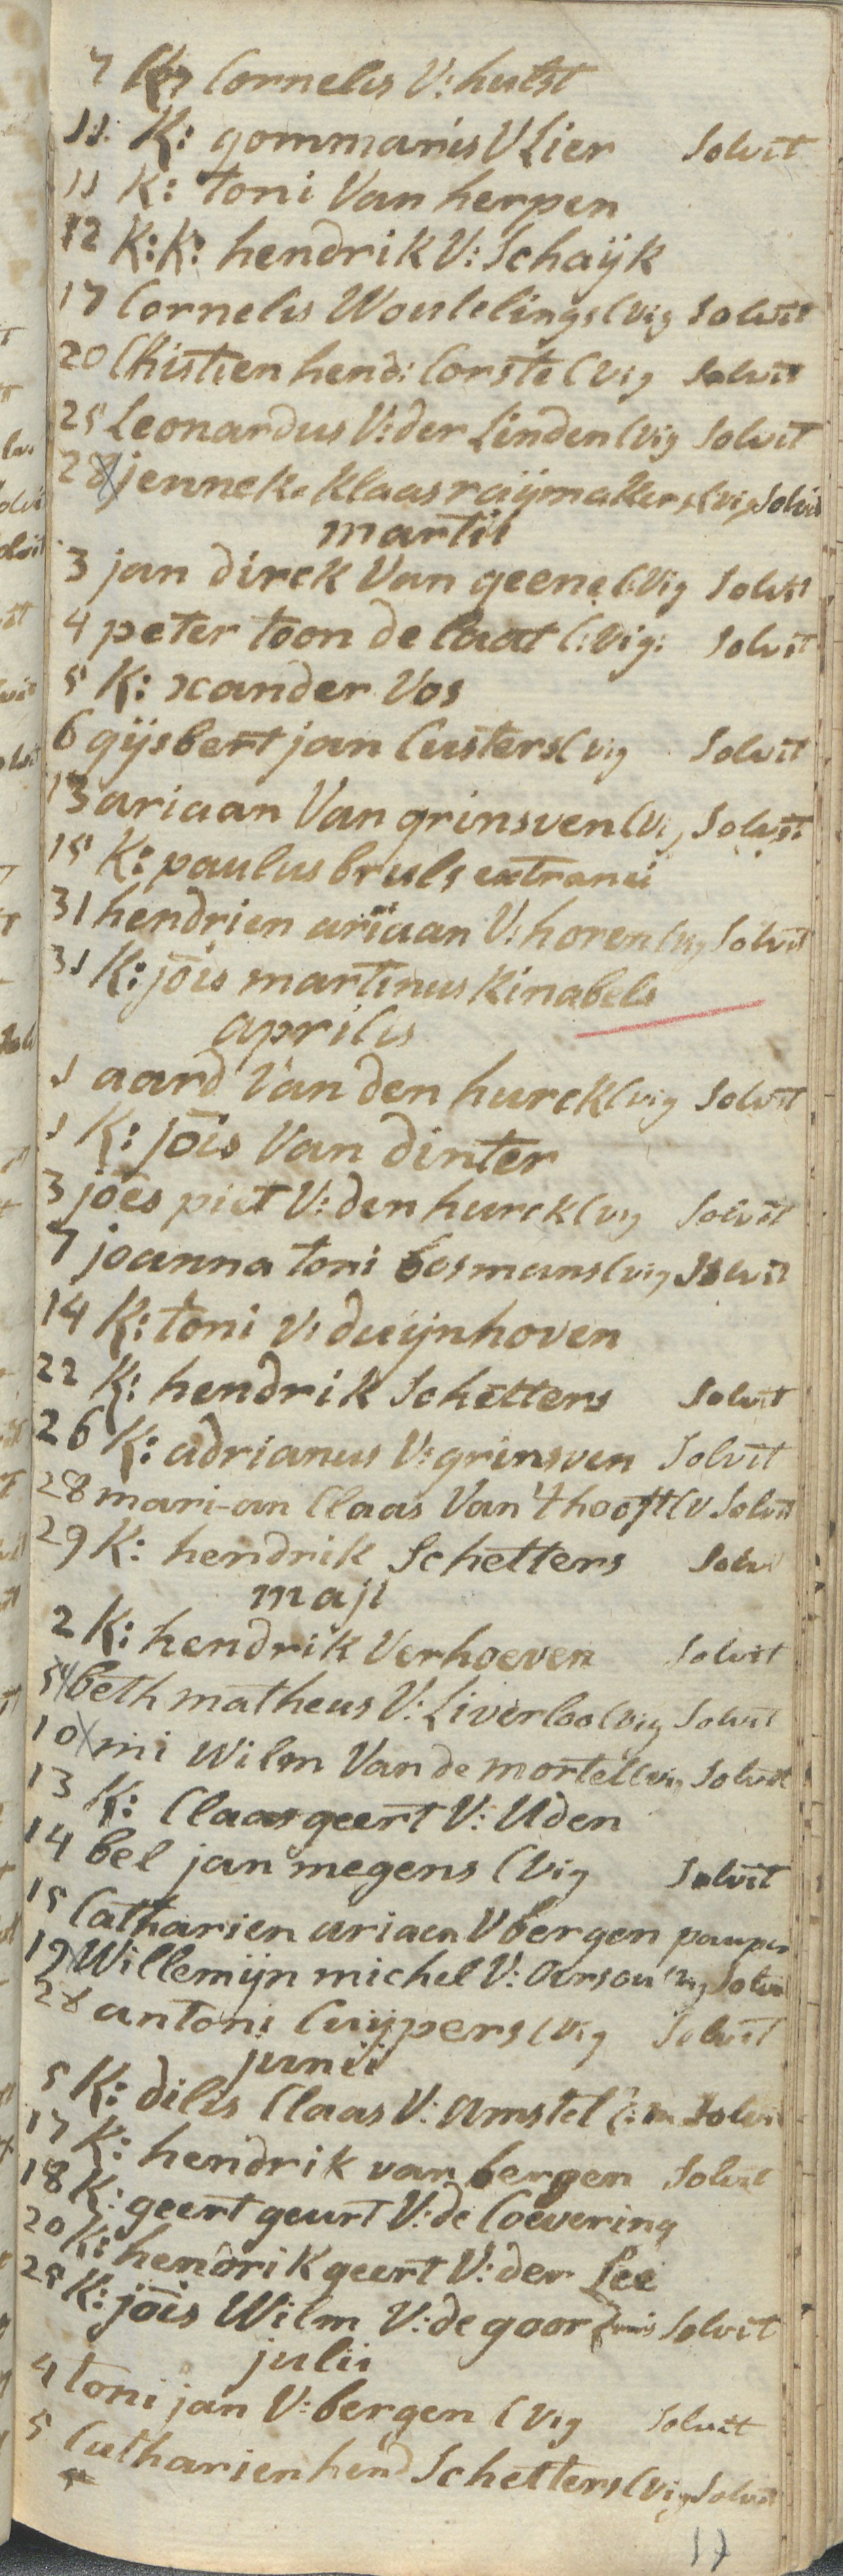 7 K: Cornelis V: hulst
11 K: gommarus V Lier Solvit
11 K: toni Van herpen
12 K: K: hendrik V: Schaÿk
17 Cornelis Woutelings (vig Solvit
20 Christien hend: Corste (vig Solvit
25 Leonardus V: der Linden (vig Solvit
28 jenneke Klaas raÿmakers (vig Solvit
martii
3 jan dirck Van geene (: vig Solvit
4 peter toon de laat (: vig: Solvit
5 K: xander Vos
6 gÿsbert jan Custers (vig Solvit
13 ariaan Van grinsven (vig Solvit
15 K: paulus bruls extranei
31 hendrien ariaan V: horen (vig Solvit
31 K: jois martinus Kinabels
aprilis
1 aard Van den hurck (vig Solvit
1 K: jois Van dinter
3 joes piet V: den hurck (vig Solvit
7 joanna toni bosmans (vig Solvit
14 K: toni V: duÿnhoven
22 K: hendrik Schetters Solvit
26 K: adrianus V: grinsven Solvit
28 mari-an Claas Van 't hooft (V Solvit
29 K: hendrik Schetters Solvi
maji
2 K: hendrik Verhoeven Solvit
5 beth matheus V: Liverloo (vig Solvit
10 mi Wilm Van de mortel (vig Solvit
13 K: Claas geert V: Uden
14 bel jan megens (vig Solvit
15 Catharien ariaen V bergen pauper
19 Willemijn michel V: (vig Solvi
28 antoni Cuÿpers (vig Solvit
junii
5 K: dilis Claas V: amstel Solvi
17 K: hendrik van bergen Solvit
18 K: geert geurt V: de Coevering
20 K: hendrik geert V: der Lee
25 K: jois Wilm V: de goor Solvit
julii
4 toni jan V: bergen (vig Solvit
5 Catharien hend Schetters (vig Solvit
17